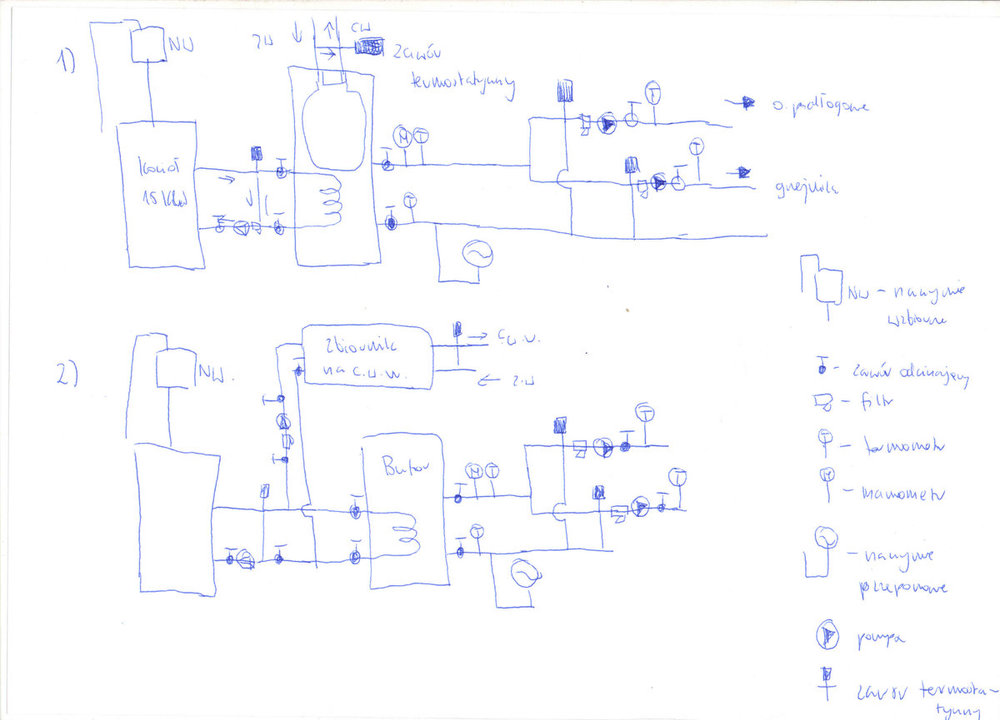 1)
NW
ZW
CW
Zawór
termostatyczny
Kocioł
15 KW
M
T
T
T
o. podłogowe
T
grzejniki
2)
NW.
Zbiornik
na c.w.u.
c.w.u.
z.w
Bufor
M
T
T
T
T
NW - naczynie
wzbiorcze
- zawór odcinający
- filtr
T - termometr
M - manometr
- naczynie
przeponowe
- pompa
zawór termosta-
tyczny